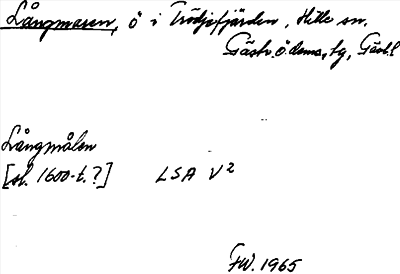 Långmaren, ö i Trödjefjärden, Hille sn.
Gästr. ö. doms. tg, Gävl. l
Långmålen
[sl. 1600-t.?] LSA V2
FW. 1965